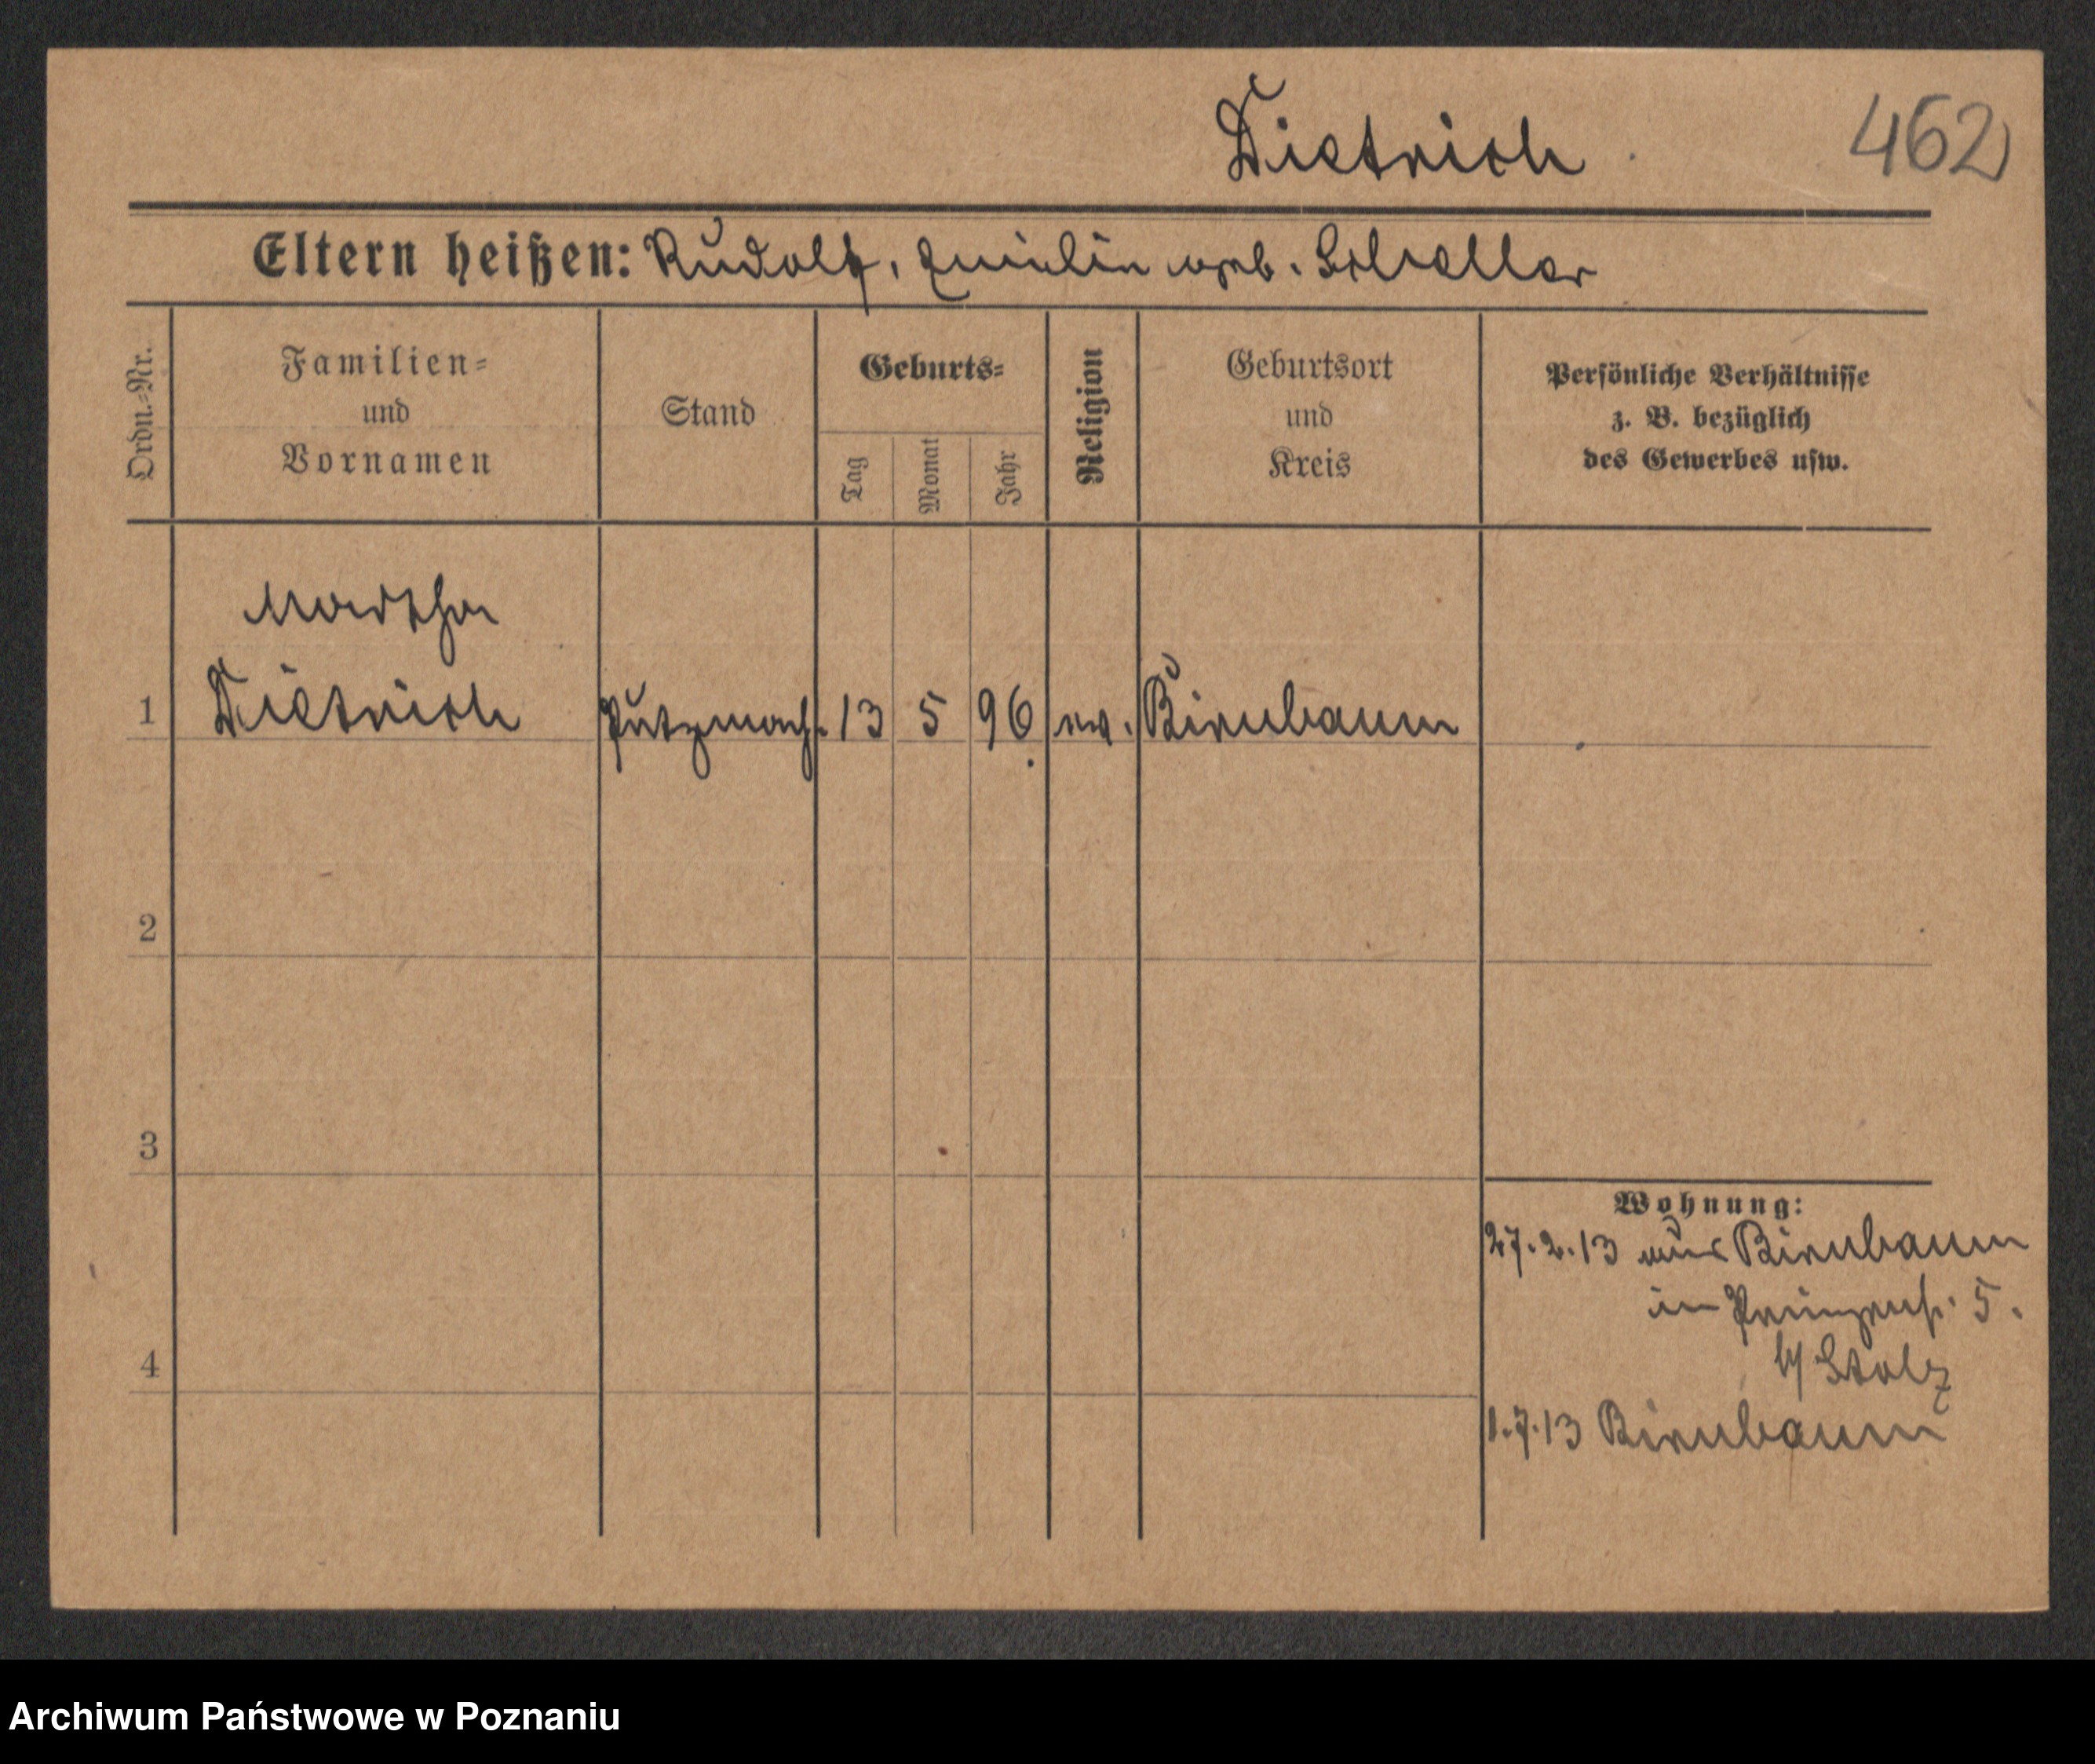 Dietrich
462
Eltern heißen: Rudolf, Emilie geb. Scheller
Ordn.-Nr.
Familien-
und
Vornamen
Stand
Geburts-
Tag
Monat
Jahr
Religion
Geburtsort
und
Kreis
Persönliche Verhältnisse
z. B. bezüglich
des Gewerbes usw.
Martha
1 Dietrich Putzmach. 13 5 96 ev. Birnbaum
2
3
4
Wohnung:
27.2.13 aus Birnbaum
in Prinzenst. 5.
b/ Stolz
1.7.13 Birnbaum
Archiwum Państwowe w Poznaniu